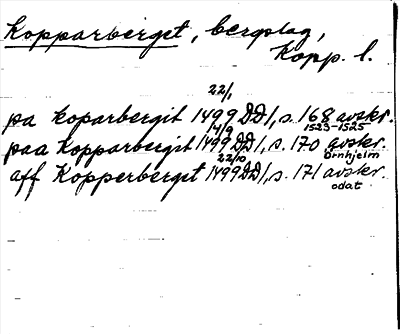 Kopparberget, bergslag,
Kopp. l.
22/1
pa koparbergit 1499 DD1, s. 168 avskr.
1523-1525
14/9
paa Kopparbergit 1499 DD1, s. 170 avskr.
Örnhjelm
22/10
aff Kopperberget 1499 DD1, s. 171 avskr.
odat